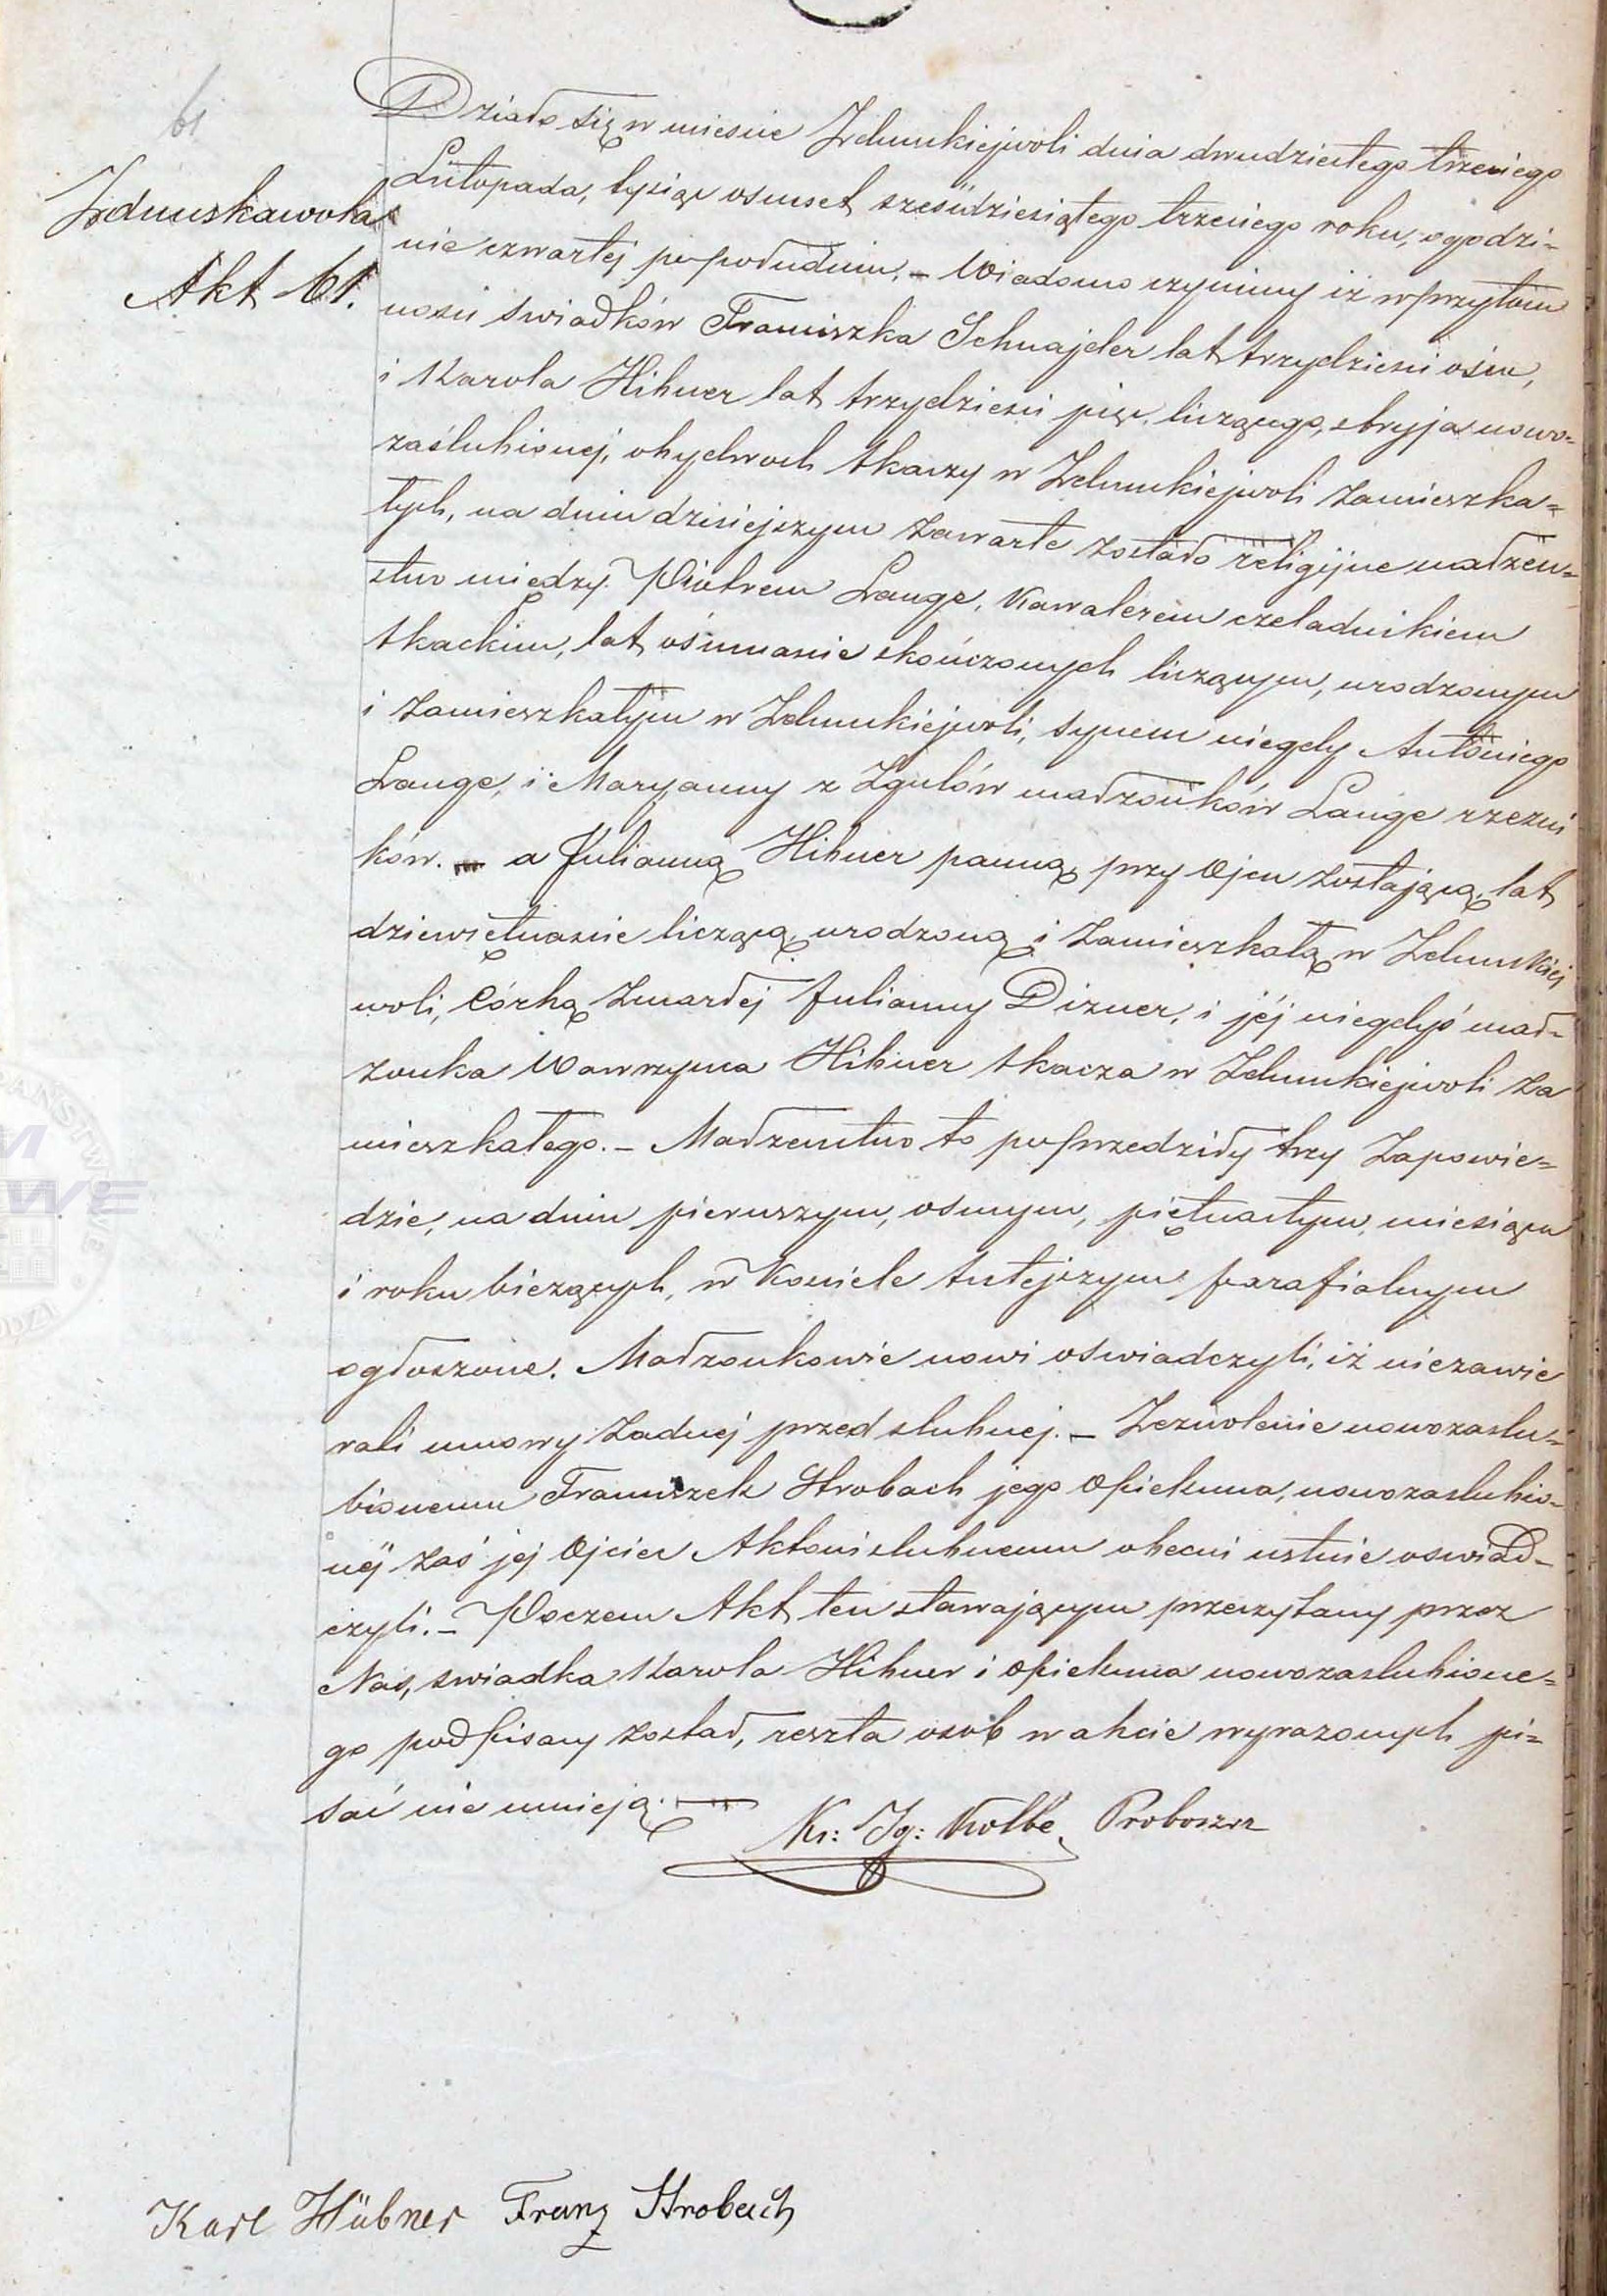 61
Zduńskawola
Akt 61.
Działo się w mieście Zduńskiejwoli dnia dwudziestego trzeciego
Listopada, tysiąc osmset sześćdziesiątego trzeciego roku, o godzi=
nie czwartej po południu. – Wiadomo czynimy iż w przytom
ności swiadków Franciszka Schnajder lat trzydzieści ośm,
i Karola Hibner lat trzydzieści pięć liczącego, stryja nowo=
zaślubionej, obydwoch tkaczy w Zduńskiejwoli zamieszka=
łych, na dniu dzisiejszym zawarte zostało religijne małżeń=
stwo między Piotrem Lange, Kawalerem czeladnikiem
tkackim, lat ośmnaście skończonych liczącym, urodzonym
i zamieszkałym w Zduńskiejwoli, synem niegdy Antoniego
Lange, i Maryanny z Zgulów małżonków Lange rzeźni
ków. – a Julianną Hibner panną przy Ojcu zostającą, lat
dziewiętnaście liczącą, urodzoną i zamieszkałą w Zduńskiej
woli, Córką zmarłej Julianny Dizner, i jéj niegdyś mał=
żonka Wawrzyńca Hibner tkacza w Zduńskiejwoli za
mieszkałego. – Małżeństwo to poprzedziły trzy Zapowie=
dzie, na dniu pierwszym, osmym, piętnastym, miesiąca
i roku bieżących, w Kościele tutejszym parafialnym
ogłoszone. Małżonkowie nowi oswiadczyli, iż niezawie
rali umowy żadnej przed slubnej. – Zezwolenie nowozaslu=
bionemu Franciszek Strobach jego Opiekuna, nowozaslubio=
néj zaś jej Ojciec Aktowi slubnemu obecni ustnie oswiad=
czyli. – Poczem Akt ten stawającym przeczytany przez
Nas, swiadka Karola Hibner i opiekuna nowozaslubione=
go podpisany został, reszta osob w akcie wyrażonych pi=
sać nie umieją. —
Ks: Ig: Kolbe, Proboszcz
Karl Hübner Franz Strobach